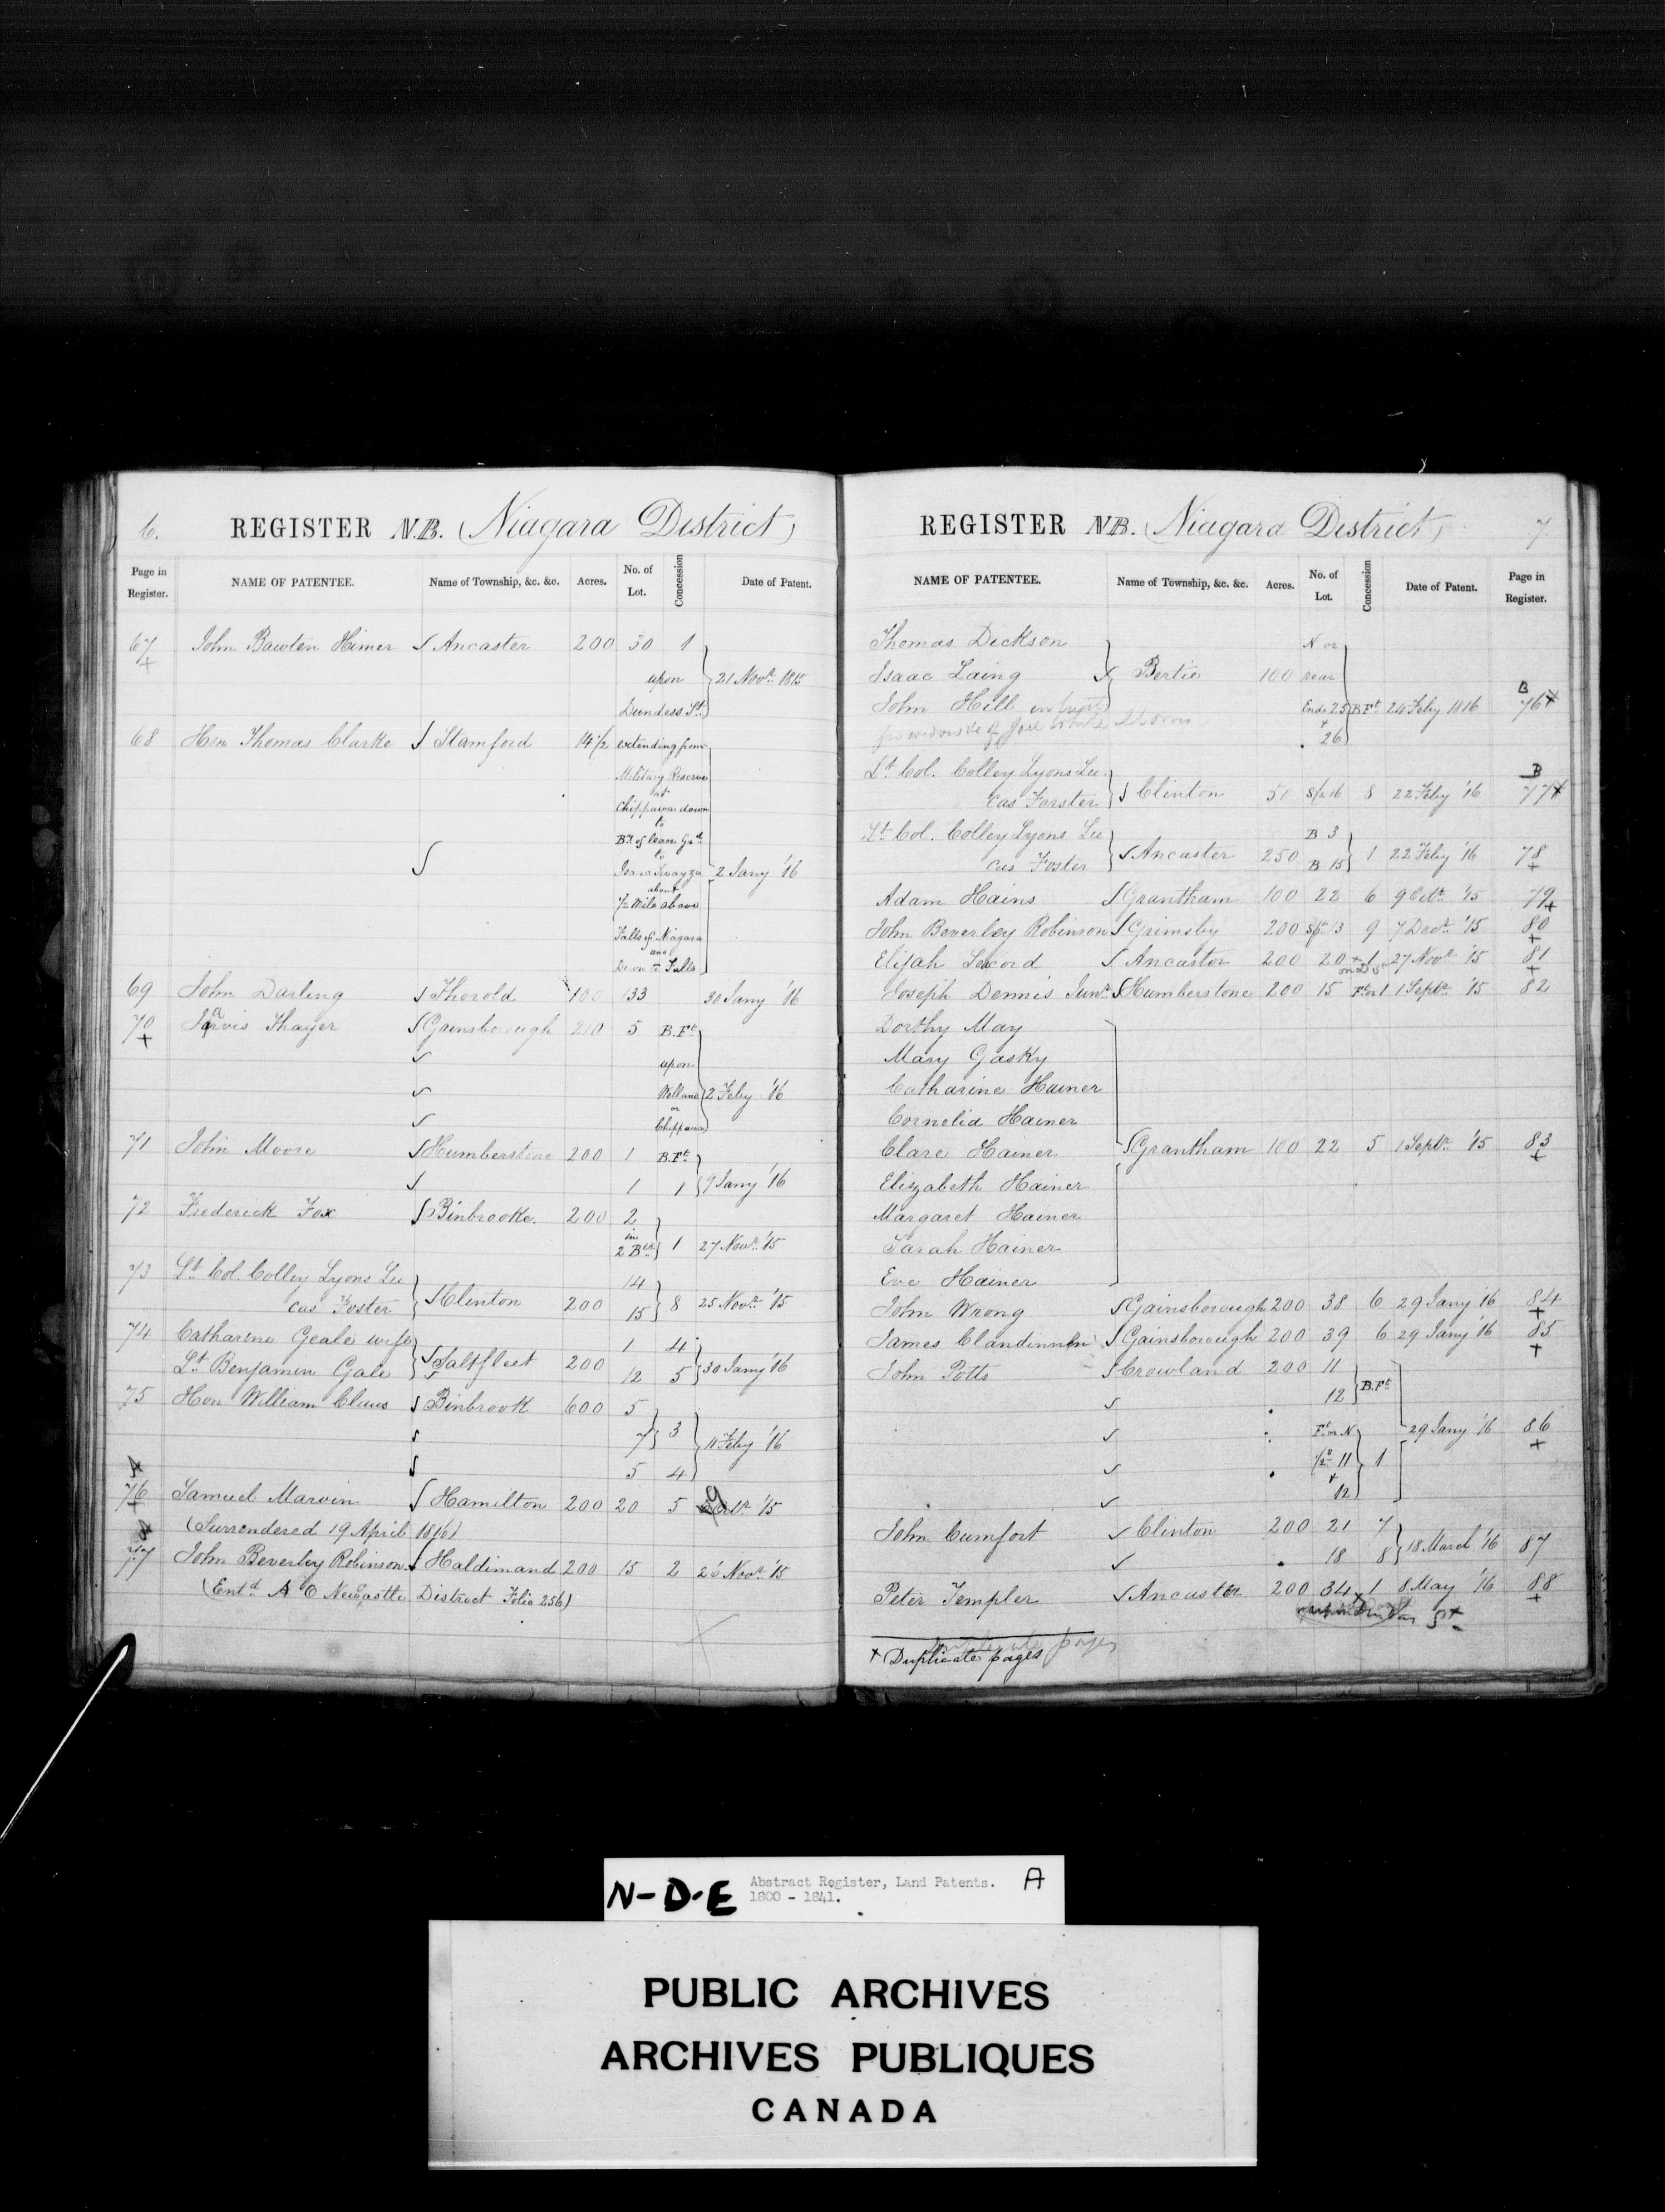 6.
REGISTER N.B. (Niagara District)
Page in Register. NAME OF PATENTEE. Name of Township, &c. &c. Acres. No. of Lot. Concession Date of Patent.
67 John Bawten Himer Ancaster 200 50 1
upon 21 Novr. 1815
Dundess St.
68 Hon Thomas Clarke Stamford 14 1/2 extending from
Military Reserve
at
Chippawa down
to
to
2 Jany '16
about
1/2 Mile above
Falls of Niagara
and
Down to Falls
69 John Darling Thorold 100 133 30 Jany '16
70 Jarvis Thayer Gainsborough 210 5 B. Ft.
upon
Welland 2 Feby '16
or
Chippawa
71 John Moore Humberstone 200 1 B. Ft.
1 1 9 Jany '16
72 Frederick Fox Binbrooke. 200 2
in
2 Ber. 1 27 Novr. '15
73 Lt. Col. Colley Lyons Lu 14
cas Foster Clinton 200 15 8 25 Novr. '15
74 Catharine Geale wife 1 4
Lt. Benjamin Gale Saltfleet 200 12 5 30 Jany '16
75 Hon William Claus Binbrook 600 5
7 3 11 Feby '16
5 4
76 Samuel Marvin Hamilton 200 20 5 9 Octr. '15
(Surrendered 19 April 1816)
77 John Beverley Robinson Haldimand 200 15 2 Novr. '15
(Entd. A C Newcastle District Folio 256)
7.
REGISTER NB. (Niagara District)
NAME OF PATENTEE. Name of Township, &c. &c. Acres. No. of Lot. Concession Date of Patent. Page in Register.
Thomas Dickson N or
Isaac Laing Bertie 100 rear
John Hill in trust Ends 25 B Ft. 24 Feby 1816 B 76 +
+ 26
Lt. Col. Colley Lyons Lu B
cas Forster Clinton 50 S/2 16 8 22 Feby '16 77 +
Lt. Col. Colley Lyons Lu B 3
cas Foster Ancaster 250 B 15 1 22 Feby '16 78 +
Adam Hains Grantham 100 22 6 9 Octr. '15 79 +
John Beverley Robinson Grimsby 200 13 9 7 Decr. '15 80 +
Elijah Secord Ancaster 200 20 1 27 Novr. '15 81 +
Joseph Dennis Junr. Humberstone 200 15 Ft or 1 1 Septr. '15 82
Dorthy May
Mary Gasky
Catharine Hainer
Cornelia Hainer
Clare Hainer Grantham 100 22 5 1 Septr. '15 83 +
Elizabeth Hainer
Margaret Hainer
Sarah Hainer
Eve Hainer
John Wrong Gainsborough 200 38 6 29 Jany '16 84 +
James Clandinnen Gainsborough 200 39 6 29 Jany '16 85 +
John Potts Crowland 200 11
12 B. Ft.
Ft. or N 29 Jany '16 86 +
1/2 11 1
+
12
John Cumfort Clinton 200 21 7
18 8 18 March '16 87
Peter Templer Ancaster 200 34 1 8 May '16 88 +
+ Duplicate pages
N-D-E Abstract Register, Land Patents. A
1800 - 1841.
PUBLIC ARCHIVES
ARCHIVES PUBLIQUES
CANADA